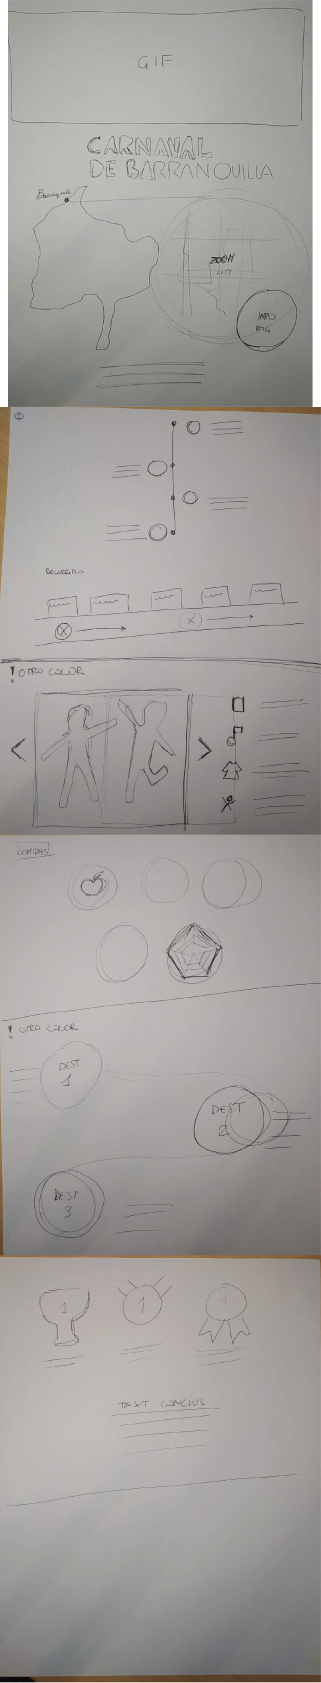 GIF
CARNAVAL
DE BARRANQUILLA
Barranquilla
ZOOM
CITY
INFO
RECORRIDO
! OTRO COLOR
COMIDAS
! OTRO COLOR
DEST
1
DEST
2
DEST
3
1
1
1
TEXT CONCLUS